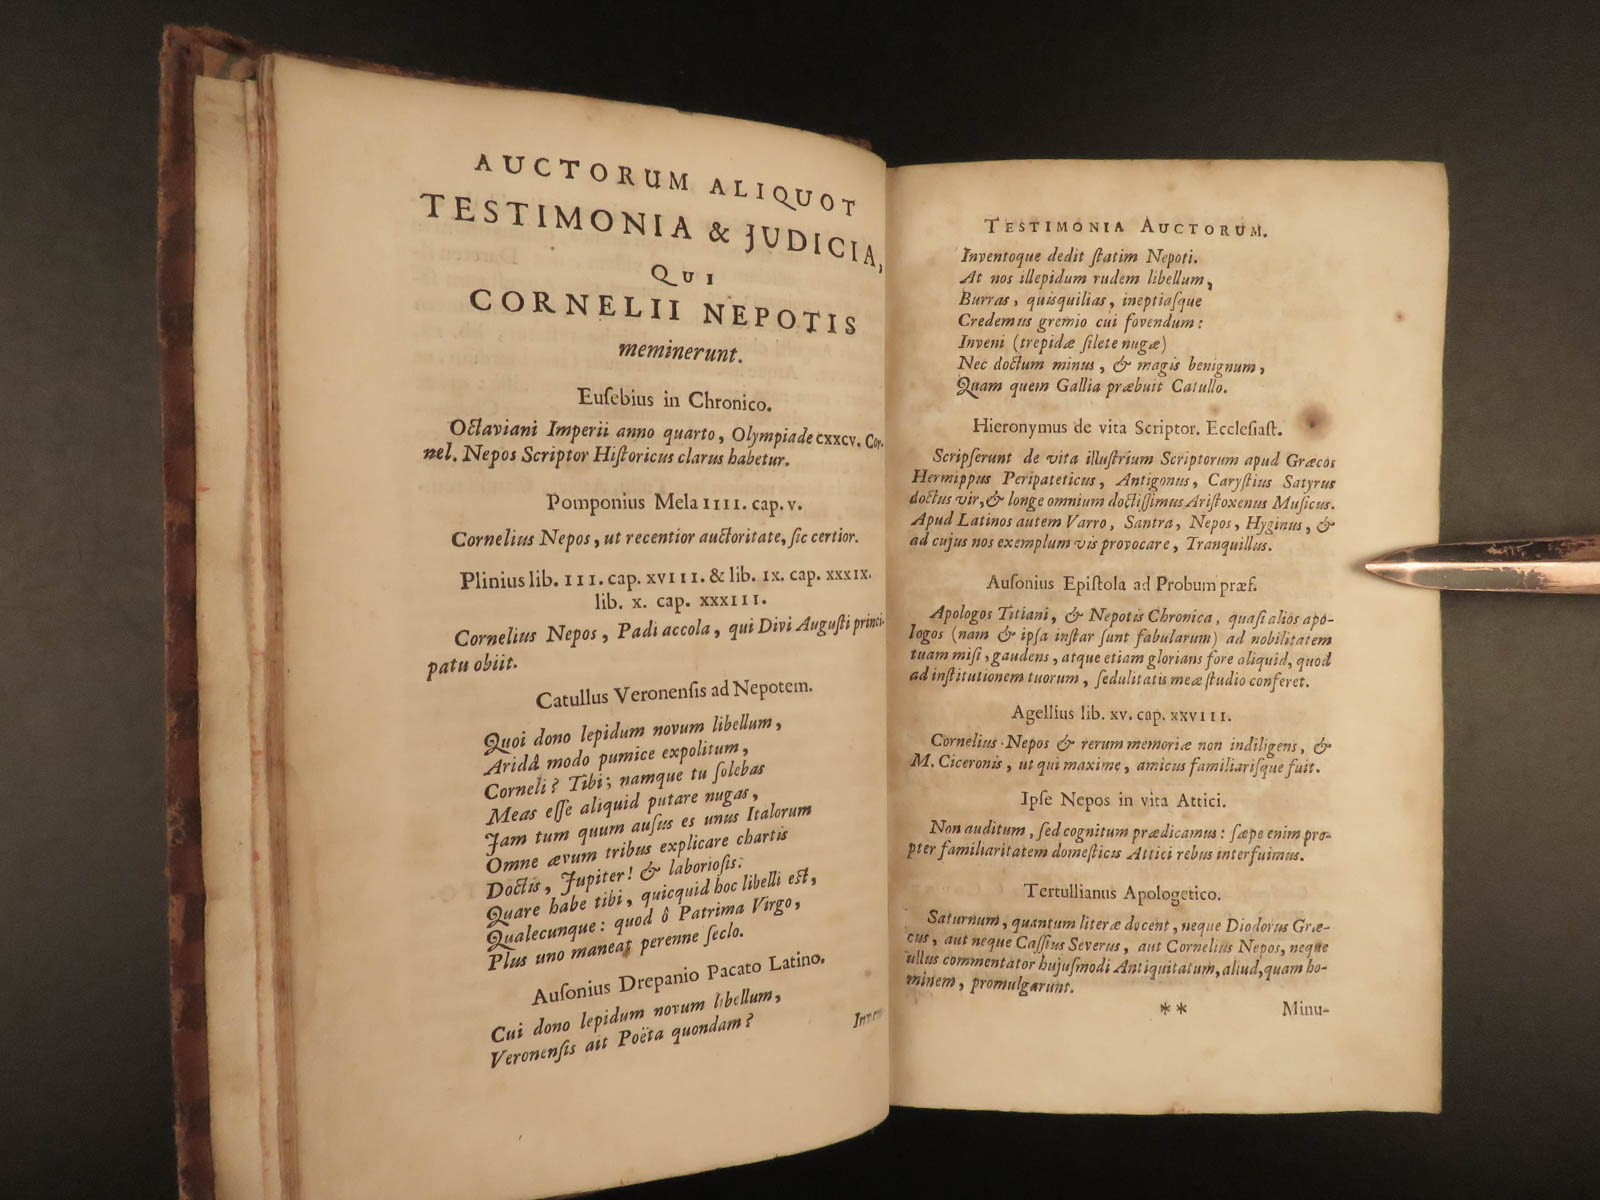 AUCTORUM ALIQUOT
TESTIMONIA & JUDICIA,
QUI
CORNELII NEPOTIS
meminerunt.
Euſebius in Chronico.
Octaviani Imperii anno quarto, Olympiade CXXCV. Cor-
nel. Nepos Scriptor Hiſtoricus clarus habetur.
Pomponius Mela IIII. cap. V.
Cornelius Nepos, ut recentior auctoritate, ſic certior.
Plinius lib. III. cap. XVIII. & lib. IX. cap. XXXIX.
lib. X. cap. XXXIII.
Cornelius Nepos, Padi accola, qui Divi Auguſti princi-
patu obiit.
Catullus Veronenſis ad Nepotem.
Quoi dono lepidum novum libellum,
Aridâ modo pumice expolitum,
Corneli? Tibi; namque tu ſolebas
Meas eſſe aliquid putare nugas,
Jam tum quum auſus es unus Italorum
Omne ævum tribus explicare chartis
Doctis, Jupiter! & laborioſis.
Quare habe tibi, quicquid hoc libelli eſt,
Qualecunque: quod ô Patrima Virgo,
Plus uno maneat perenne ſeclo.
Auſonius Drepanio Pacato Latino.
Cui dono lepidum novum libellum,
Veronenſis ait Poëta quondam?
TESTIMONIA AUCTORUM.
Inventoque dedit ſtatim Nepoti.
At nos illepidum rudem libellum,
Burras, quisquilias, ineptiaſque
Credemus gremio cui fovendum:
Inveni (trepidæ ſilete nugæ)
Nec doctum minus, & magis benignum,
Quam quem Gallia præbuit Catullo.
Hieronymus de vita Scriptor. Eccleſiaſt.
Scripſerunt de vita illuſtrium Scriptorum apud Græcos
Hermippus Peripateticus, Antigonus, Caryſtius Satyrus
doctus vir, & longe omnium doctiſſimus Ariſtoxenus Muſicus.
Apud Latinos autem Varro, Santra, Nepos, Hyginus, &
ad cujus nos exemplum vis provocare, Tranquillus.
Auſonius Epiſtola ad Probum præf.
Apologos Titiani, & Nepotis Chronica, quaſi alios apo-
logos (nam & ipſa inſtar ſunt fabularum) ad nobilitatem
tuam miſi, gaudens, atque etiam glorians fore aliquid, quod
ad inſtitutionem tuorum, ſedulitatis meæ ſtudio conferet.
Agellius lib. XV. cap. XXVIII.
Cornelius Nepos & rerum memoriæ non indiligens, &
M. Ciceronis, ut qui maxime, amicus familiariſque fuit.
Ipſe Nepos in vita Attici.
Non auditum, ſed cognitum prædicamus: ſæpe enim pro-
pter familiaritatem domeſticis Attici rebus interfuimus.
Tertullianus Apologetico.
Saturnum, quantum literæ docent, neque Diodorus Græ-
cus, aut neque Caſſius Severus, aut Cornelius Nepos, neque
ullus commentator hujuſmodi Antiquitatum, aliud, quam ho-
minem, promulgarunt.
** Minu-